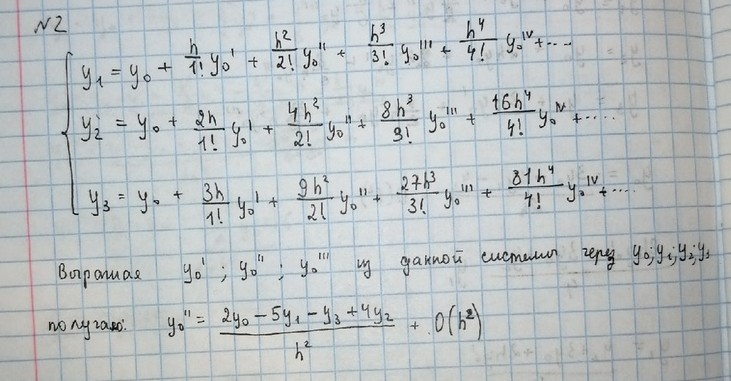 №2
y₁ = y₀ + h/1! y₀' + h²/2! y₀'' + h³/3! y₀''' + h⁴/4! y₀ᴵⱽ + ....
y₂ = y₀ + 2h/1! y₀' + 4h²/2! y₀'' + 8h³/3! y₀''' + 16h⁴/4! y₀ᴵⱽ + .....
y₃ = y₀ + 3h/1! y₀' + 9h²/2! y₀'' + 27h³/3! y₀''' + 81h⁴/4! y₀ᴵⱽ + ....
Выражая y₀' ; y₀'' ; y₀''' из данной системы через y₀; y₁; y₂; y₁
получаю: y₀'' = (2y₀ − 5y₁ − y₃ + 4y₂)/h² + O(h²)